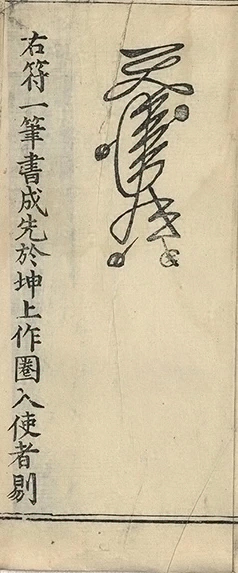 右符一筆書成先於坤上作圈入使者剔